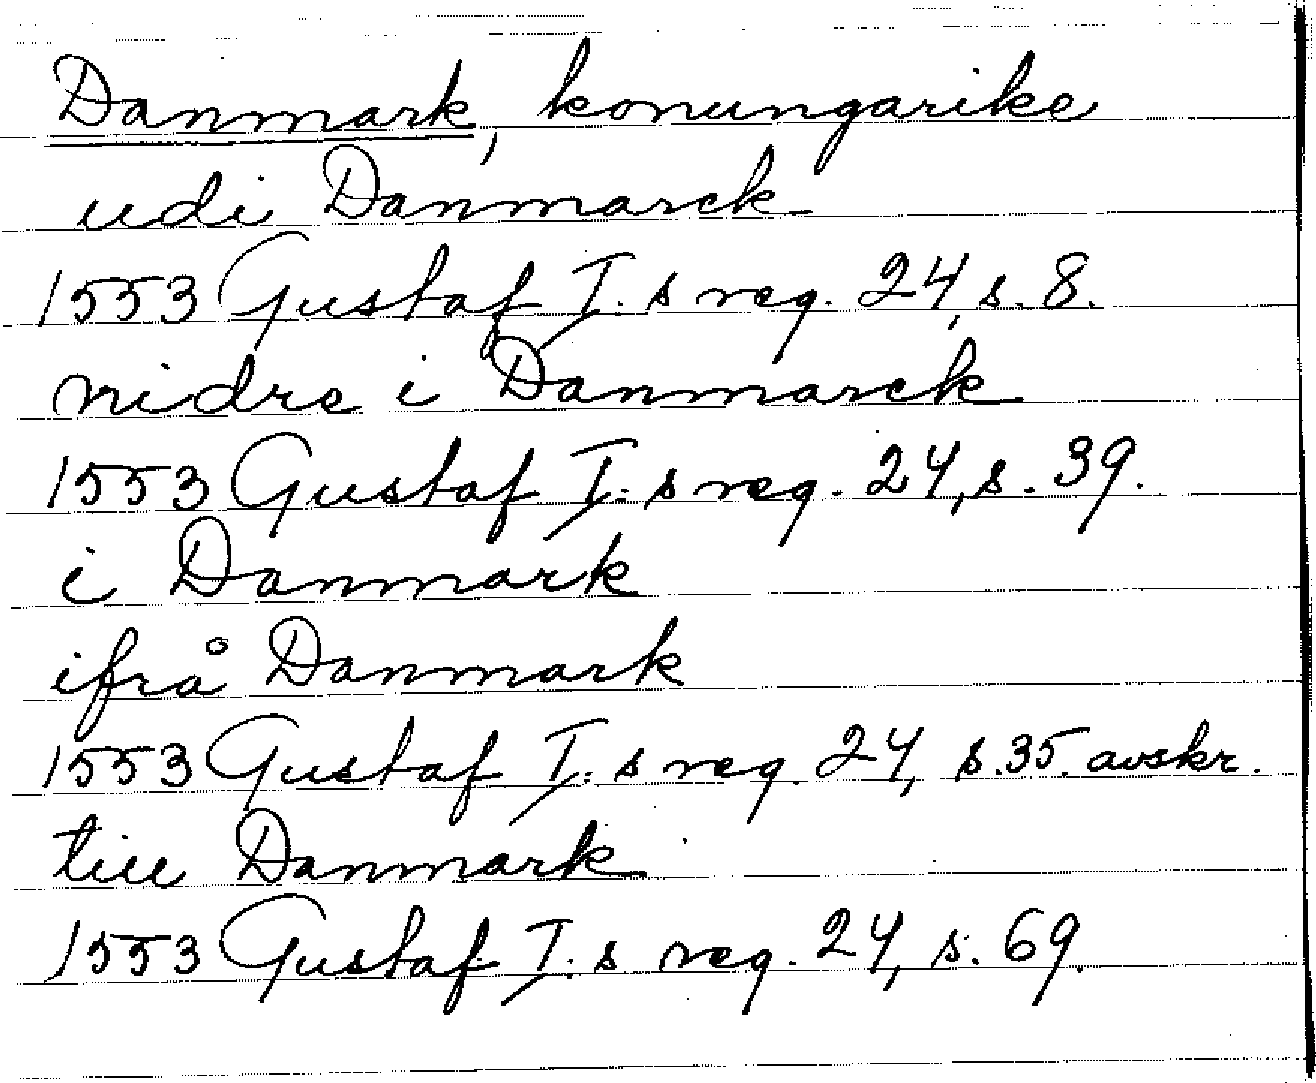 Danmark, konungarike
udi Danmarck
1553 Gustaf I.s reg. 24, s. 8.
nidre i Danmarck
1553 Gustaf I.s reg. 24, s. 39.
i Danmark
ifrå Danmark
1553 Gustaf I.s reg. 24, s. 35. avskr.
till Danmark
1553 Gustaf I.s reg. 24, s. 69.